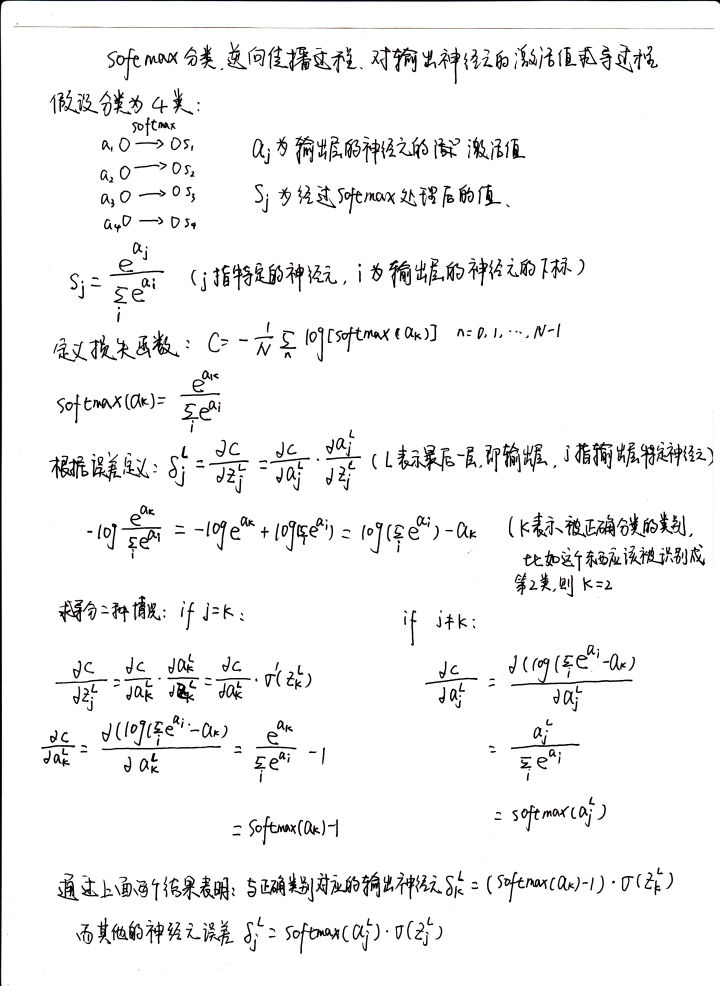 softmax分类,逆向传播过程,对输出神经元的激活值求导过程
假设分类为4类:
softmax
a₁ O → O S₁
a₂ O → O S₂
a₃ O → O S₃
a₄ O → O S₄
aⱼ为输出层的神经元的 激活值
Sⱼ为经过softmax处理后的值、
Sⱼ = e^{aⱼ} / Σᵢ e^{aᵢ} (j指特定的神经元,i为输出层的神经元的下标)
定义损失函数: C = -1/N Σₙ log[softmax(aₖ)] n=0,1,…,N-1
softmax(aₖ) = e^{aₖ} / Σᵢ e^{aᵢ}
根据误差定义: δⱼᴸ = ∂C/∂zⱼᴸ = ∂C/∂aⱼᴸ · ∂aⱼᴸ/∂zⱼᴸ (L表示最后一层,即输出层,j指输出层特定神经元)
-log e^{aₖ} / Σᵢ e^{aᵢ} = -log e^{aₖ} + log(Σᵢ e^{aᵢ}) = log(Σᵢ e^{aᵢ}) - aₖ
(K表示被正确分类的类别,
比如这个东西应该被识别成
第2类,则 K=2
求导分二种情况: if j=k:
∂C/∂zⱼᴸ = ∂C/∂aₖᴸ · ∂aₖᴸ/∂zₖᴸ = ∂C/∂aₖᴸ · σ'(zₖᴸ)
∂C/∂aₖᴸ = ∂(log(Σᵢ e^{aᵢ} - aₖ) / ∂aₖᴸ = e^{aₖ} / Σᵢ e^{aᵢ} - 1
= softmax(aₖ)-1
if j≠k:
∂C/∂aⱼᴸ = ∂(log(Σᵢ e^{aᵢ} - aₖ) / ∂aⱼᴸ
= aⱼᴸ / Σᵢ e^{aᵢ}
= softmax(aⱼᴸ)
通过上面两个结果表明:与正确类别对应的输出神经元 δₖᴸ = (softmax(aₖ)-1)·σ(zₖᴸ)
而其他的神经元误差 δⱼᴸ = softmax(aⱼᴸ)·σ(zⱼᴸ)